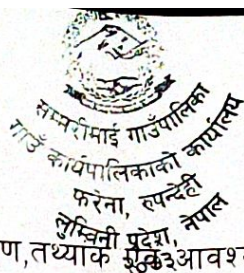 सम्मरीमाई गाउँपालिका
गाउँ कार्यपालिकाको कार्यालय
फरेना, रुपन्देही
लुम्बिनी प्रदेश, नेपाल
ण,तथ्यांक